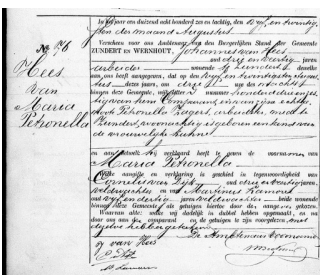 In het jaar een duizend acht honderd zes en tachtig, den vijf en twintig
sten der maand Augustus
Verscheen voor ons Ambtenaar van den Burgerlijken Stand der Gemeente
ZUNDERT EN WERNHOUT, Johannes van Hees
oud drie en dertig jaren
arbeider wonende te Zundert dewelke
ons heeft aangegeven, dat op den vijf en twintigsten
dezes jaars, des ure des nachts
binnen deze Gemeente,
van hem Comparant en van zijne echtge
noote Petronella arbeidster, mede te
Zundert woonachtig is geboren een kind van
de vrouwelijke kunne
en aan hetwelk hij verklaard heeft te geven de voornamen van
Maria Petronella
Welke aangifte en verklaring is geschied in tegenwoordigheid van
Cornelis van oud drie en veertig jaren,
veldwachter en van Martinus
oud vijf en dertig jaren veldwachter beide wonende
binnen deze Gemeente als getuigen hiertoe door den aangever gekozen.
Waarvan akte; welke wij dadelijk in dubbel hebben opgemaakt, en na
door ons aan den comparant en de getuigen te zijn voorgelezen, met
dezelve hebben geteekend
De Ambtenaar voornoemd
van Hees
No 76
Hees
van
Maria
Petronella